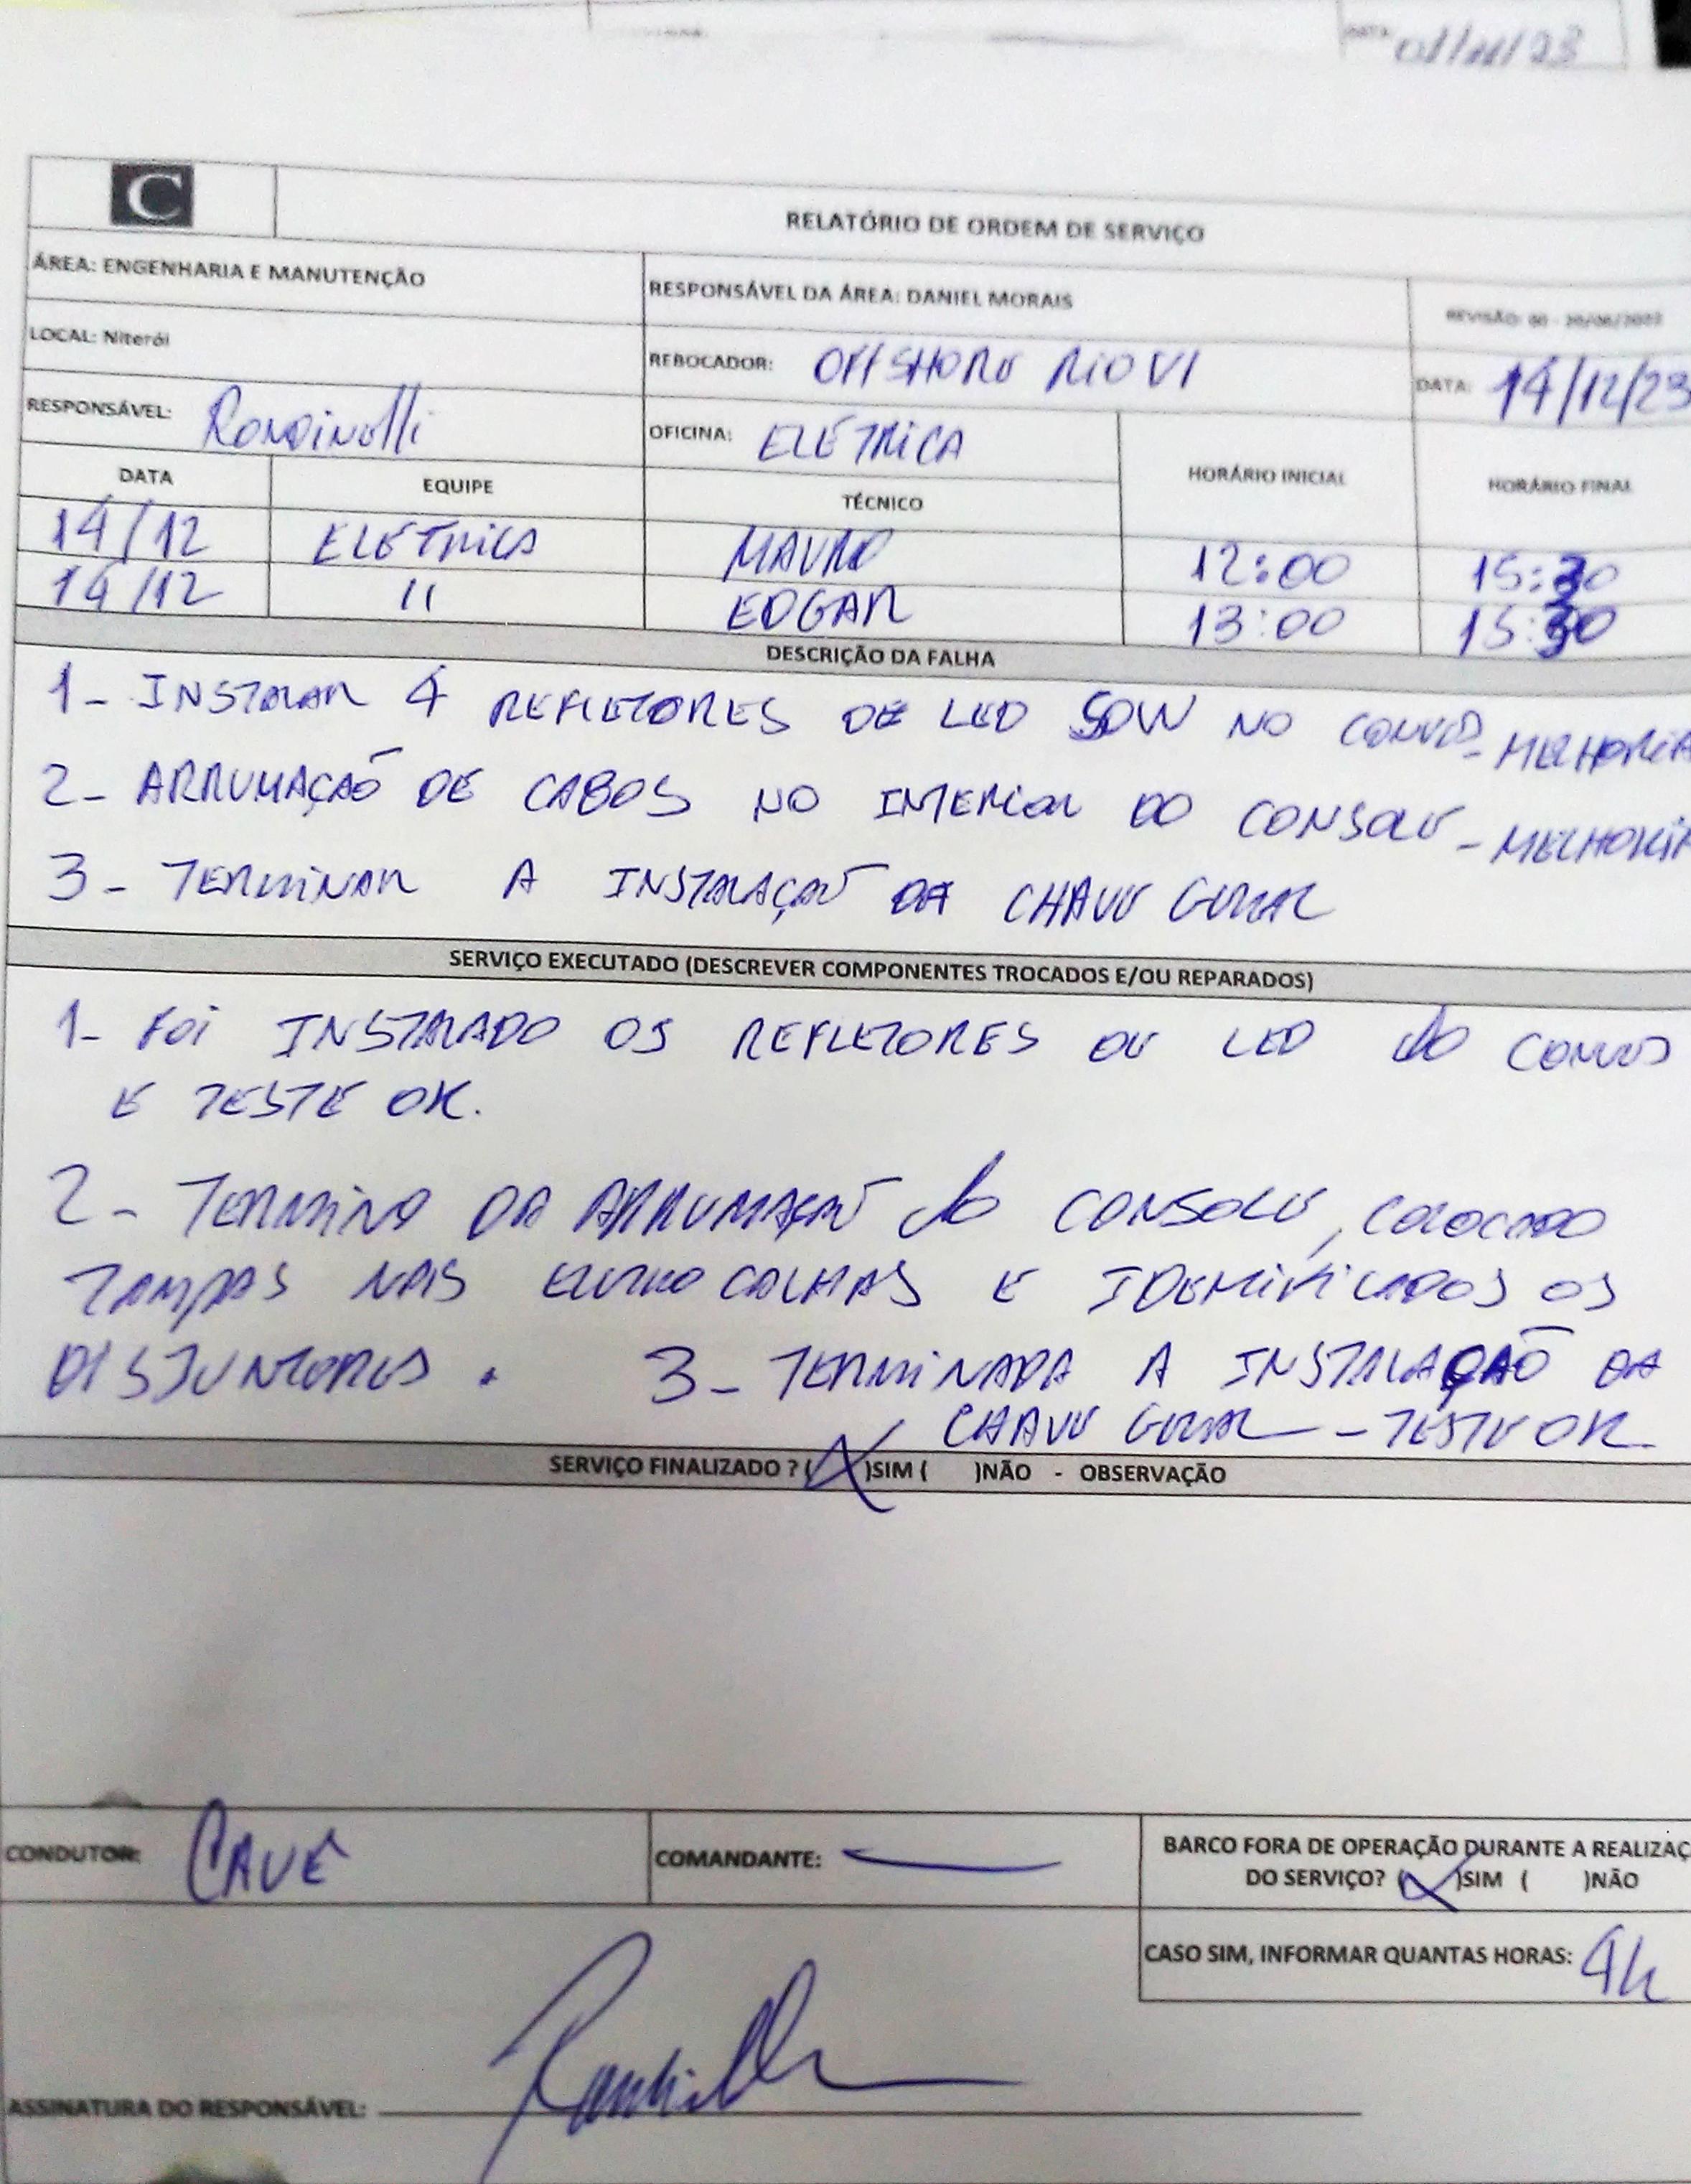 DATA 01/11/23
C
RELATÓRIO DE ORDEM DE SERVIÇO
ÁREA: ENGENHARIA E MANUTENÇÃO
RESPONSÁVEL DA ÁREA: DANIEL MORAIS
LOCAL: Niterói
REBOCADOR: OFFSHORE RIO VI
DATA: 14/12/23
RESPONSÁVEL: Rondinelli
OFICINA: ELÉTRICA
HORÁRIO INICIAL HORÁRIO FINAL
DATA EQUIPE TÉCNICO
14/12 ELÉTRICA MAURO 12:00 15:30
14/12 11 EDGAR 13:00 15:30
DESCRIÇÃO DA FALHA
1- INSTALAR 4 REFLETORES DE LED 50W NO CONVÉS - MELHORIA
2- ARRUMAÇÃO DE CABOS NO INTERIOR DO CONSOLE - MELHORIA
3- TERMINAR A INSTALAÇÃO DA CHAVE GERAL
SERVIÇO EXECUTADO (DESCREVER COMPONENTES TROCADOS E/OU REPARADOS)
1- FOI INSTALADO OS REFLETORES DE LED do CONVÉS
E TESTE OK.
2- TERMINO DA ARRUMAÇÃO do CONSOLE, COLOCADO
TAMPAS NAS ELETROCALHAS E IDENTIFICADOS OS
DISJUNTORES. 3- TERMINADA A INSTALAÇÃO DA
CHAVE GERAL - TESTE OK.
SERVIÇO FINALIZADO ? (X)SIM ( )NÃO - OBSERVAÇÃO
CONDUTOR: CAUÊ
COMANDANTE: —
BARCO FORA DE OPERAÇÃO DURANTE A REALIZAÇ
DO SERVIÇO? (X)SIM ( )NÃO
CASO SIM, INFORMAR QUANTAS HORAS: 4h
ASSINATURA DO RESPONSÁVEL: